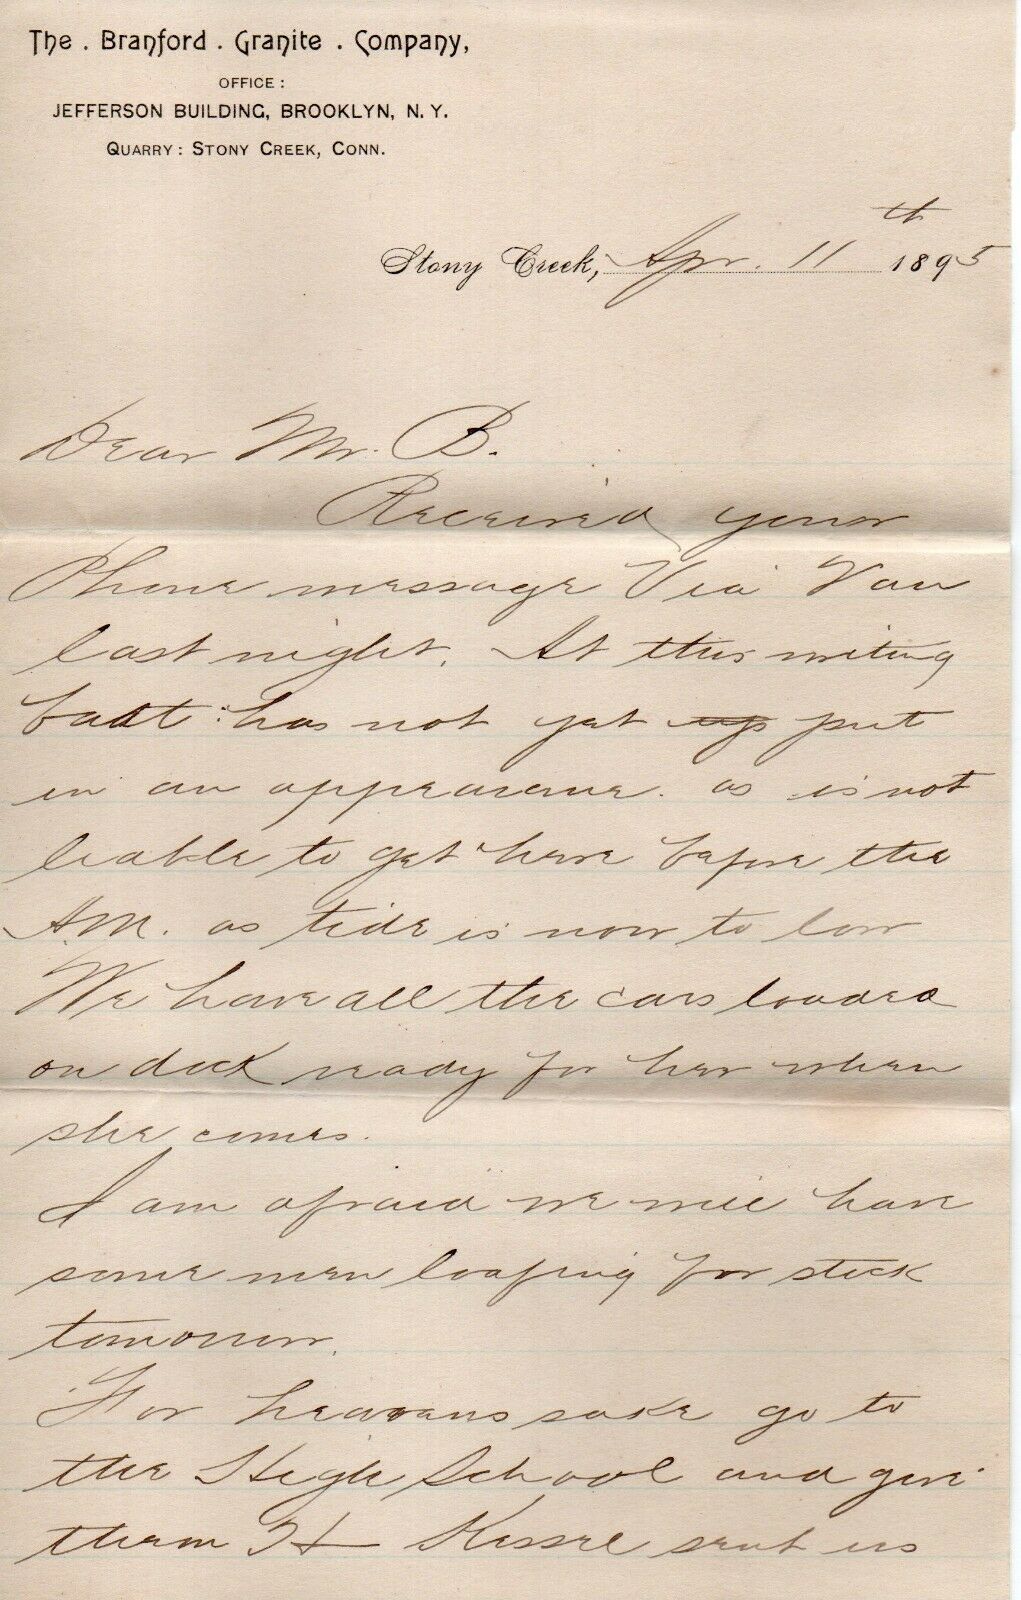 The . Branford . Granite . Company,
OFFICE :
JEFFERSON BUILDING, BROOKLYN, N. Y.
QUARRY : STONY CREEK, CONN.
Stony Creek, Apr. 11th 1895
Dear Mr. B.
Received your
Phone message Via Van
last night. At this writing
boat has not yet up put
in an appearance. as is not
liable to get here before the
A.M. as tide is now to low
We have all the cars loaded
on dock ready for her when
she comes.
I am afraid we will have
some men loafing for stock
tomorrow.
For heavans sake go to
the High School and give
them H Kissel sent us